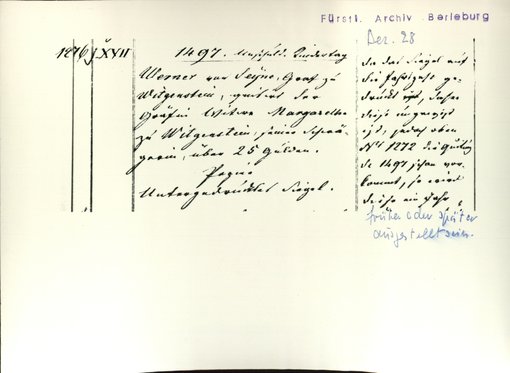 Fürstl. Archiv Berleburg
Dez. 28
1276 J XVII
1497. Unschuld. Kindertag
Werner von Seyne, Graf zu
Witgenstein, quitirt der
Gräfin Witwe Margarethe
zu Witgenstein, seiner Schwä-
gerin, über 25 Gulden.
Papier
Untergedrücktes Siegel.
da das Siegel auf
die Jahrzahl ge-
drückt ist, daher
diese
ist, jedoch oben
No 1272 die
de 1497 schon vor-
kommt, so wird
diese ein Jahr
früher oder später
ausgestellt sein.